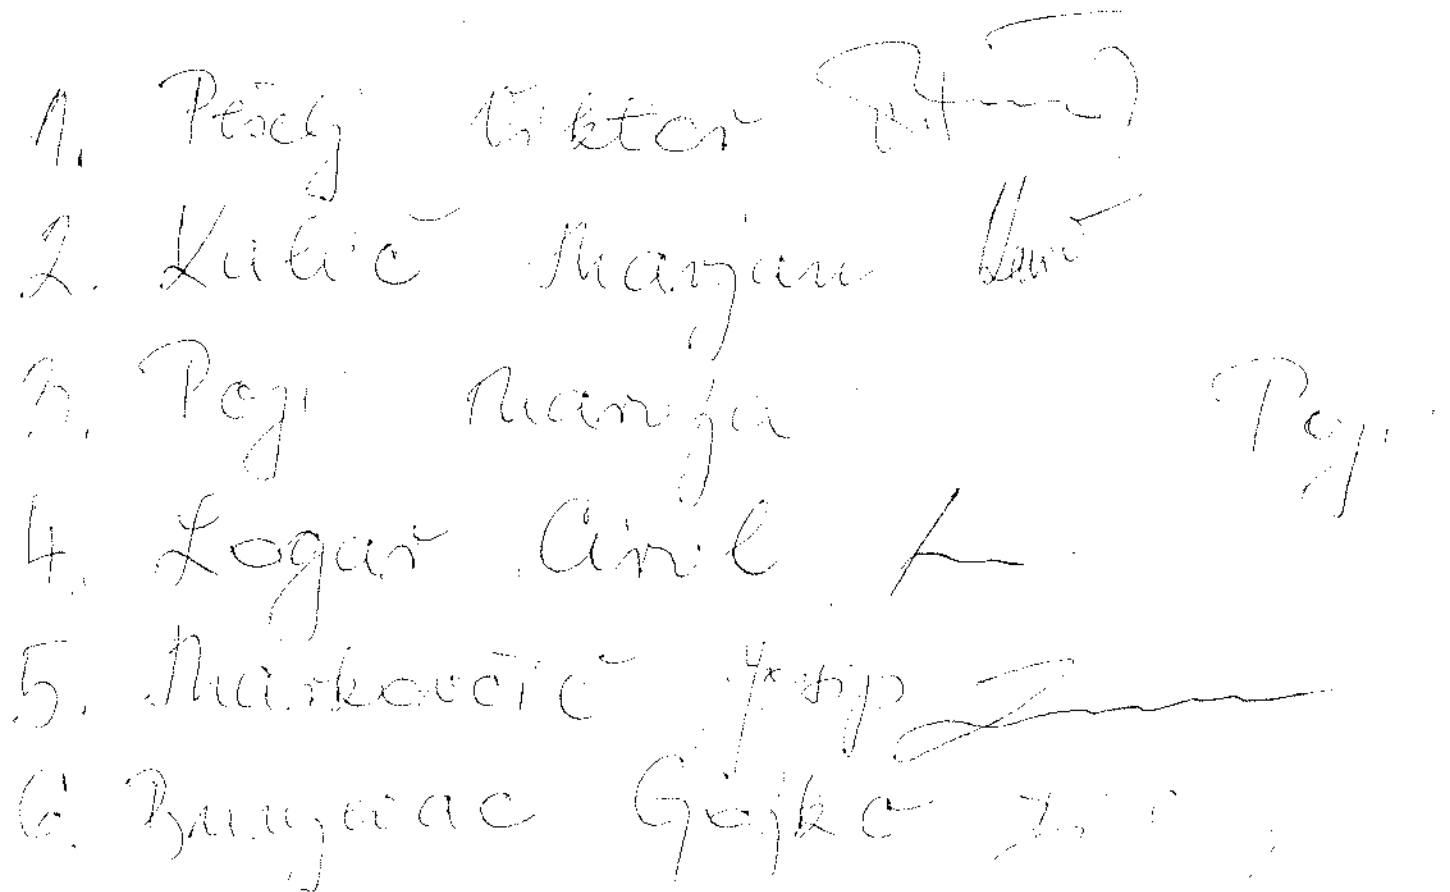 1. Viktor
2. Kulić Marjan
3. Poji Marija Poji
4. Logar Ciril
5. Markovčić Josip
6. Bunjevac Gojko